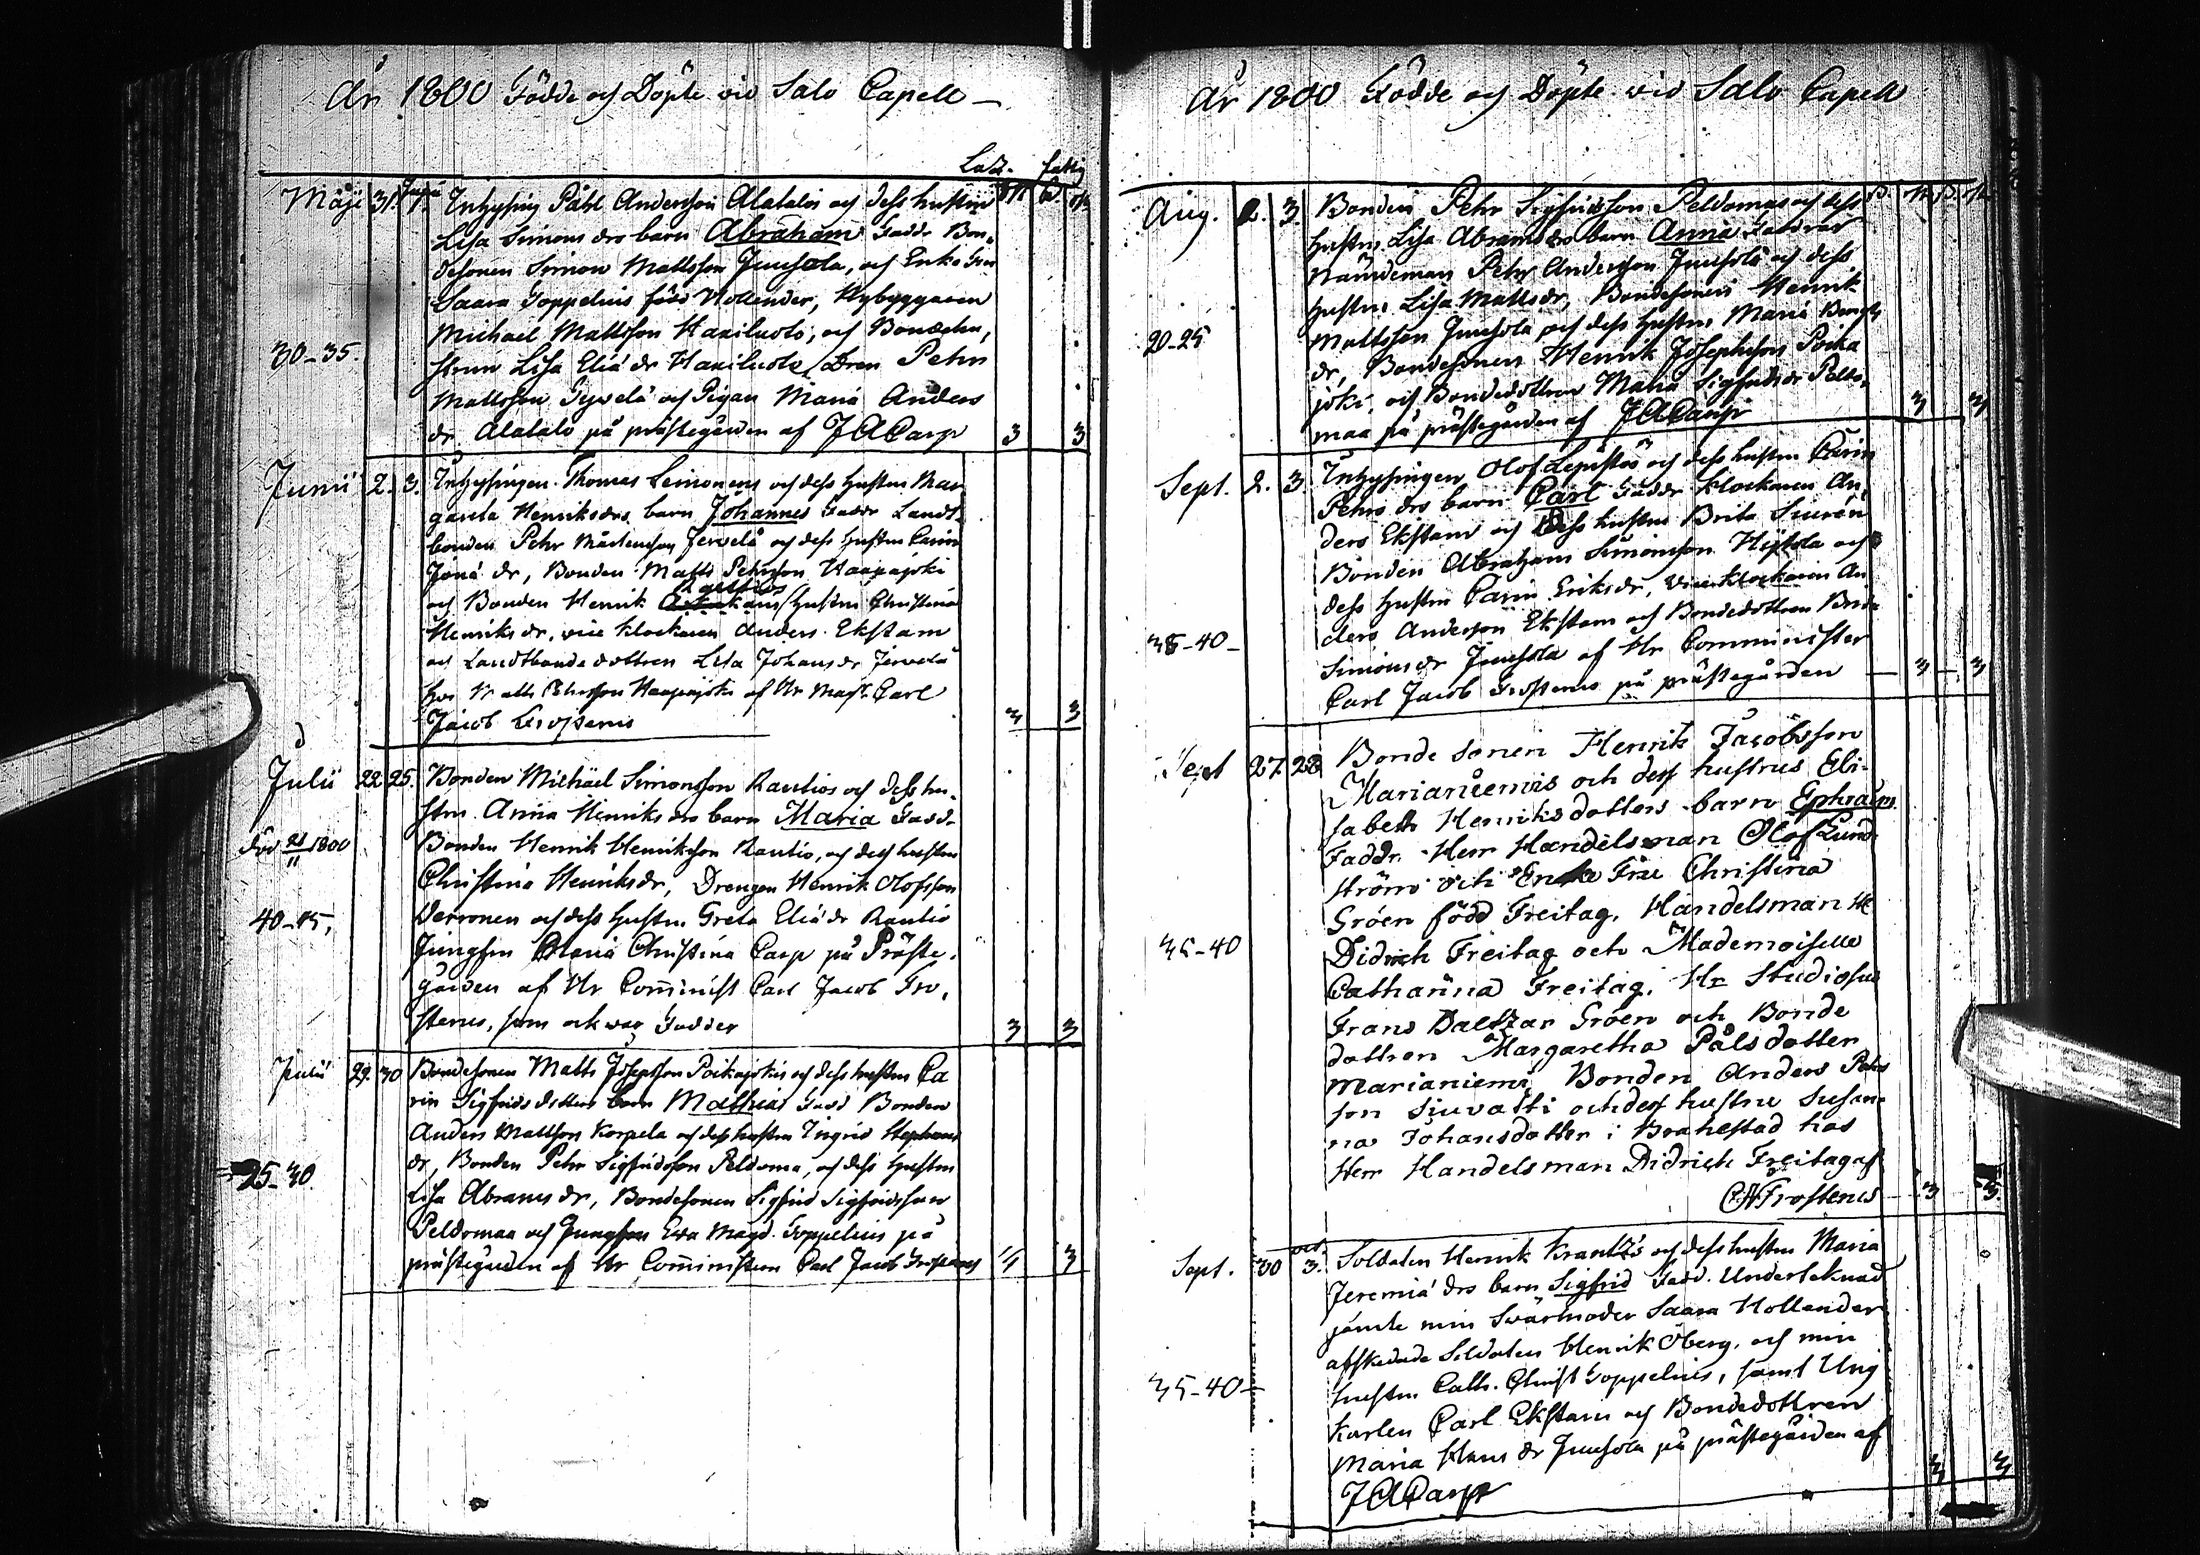 År 1800 Födde och Döpte vid Salo Capell
Maji 31. Junii 1. Inhysing Påhl Andersson Alatalos och dess hustru
Lisa Simons drs barn Abraham Faddr Bon-
desonen Simon Mattsson Juusola, och Enke Fru
Saara Toppelius född Hollender, Nybyggaren
Michael Mattsson Haxiluoto, och Bondehu-
30-35. strun Lisa Eliæ dr Haxiluoto, Dren Pehr
Mattsson Jyvelä och Pigan Maria Anders
dr Alatalo på prästegården af J A Carp 3 3
Junii 2. 3. Inhysingen Thomas Leinonens och dess hustru Mar
gareta Henriksdrs barn Johannes Faddr Landt-
bonden Pehr Mårtensson Jervelä och dess hustru Carin
Jonæ dr, Bonden Matts Pehrsson Haapajoki
och Bonden Henrik Rautios hustru Christina
Henriks dr, vice klockaren Anders Ekstam
och Landtbonde dottren Lisa Johans dr Jervelä
hos Matts Pehrsson Haapajoki af Hr Mag. Carl
Jacob Frosterus 3 3
Julii 22 25. Bonden Michael Simonsson Rautios och dess hu-
stru Anna Henriks drs barn Maria Fadd.
Bonden Henrik Henriksson Rautio, och dess hustru
Christina Henriksdr, Drengen Henrik Olofsson
40-45. Verronen och dess hustru Greta Eliæ dr Rautio
Jungfru Maria Christina Carp på Präste-
gården af Hr Comminist Carl Jacob Fro-
sterus, som ock war Fadder 3 3
Julii 29. 30 Bondesonen Matts Josephsson Poikajokis och dess hustru Ca
rin Sigfrids dotters barn Mathias Fadd Bonden
Anders Mattsson Korpela och dess hustru Ingrid Stephans
dr, Bonden Pehr Sigfridsson Peldoma, och dess hustru
25-30 Lisa Abrams dr, Bondesonen Sigfrid Sigfridsson
Peldomaa och Jungfrun Eva Magd. Toppelius på
prästegården af Hr Comministern Carl Jacob Frosterus 3
År 1800 Födde och Döpte vid Salo Capell
Aug. 2. 3. Bonden Pehr Sigfridsson Peldomas och dess
hustru Lisa Abramsdrs barn Anna Faddrar
Nämndeman Pehr Andersson Juusola och dess
hustru Lisa Mattsdr, Bondesonen Henrik
20-25 Mattsson Juusola och dess hustru Maria Bengts
dr, Bondesonen Henrik Josephsson Poika
joki, och Bondedottren Maria Sigfridsdr Peldo-
maa på prästegården af J A Carp 3 3
Sept. 2. 3. Inhysingen Olof Lepistös och dess hustru Carin
Pehrs drs barn Carl Faddr klockaren An-
ders Ekstam och dess hustru Brita Suurön
Bonden Abraham Simonsson Hextola och
dess hustru Carin Eriksdr, vice klockaren An
ders Andersson Ekstam och Bondedottren Brita
35-40- Simons dr Juusola af Hr Comminister
Carl Jacob Frosterus på prästegården 3 3
Sept 27. 28 Bonde sonen Henrik Jacobsson
Marianiemis och dess hustrus Eli-
sabeth Henriksdotters barn Ephraim
Faddr. Herr Handelsman Olof Lund-
ström och Enke Fru Christina
Gröen född Freitag, Handelsman H
35-40 Didrich Freitag och Mademoiselle
Catharina Freitag, Hr Studiosus
Frans Baltzar Gröen och Bonde
dottren Margaretha Påls dotter
Marianiemi Bonden Anders Pehrs
son Siuvatti och dess hustru Susan-
na Johansdotter i Brahestad hos
Herr Handelsman Didrich Freitag af
CJFrosterus 3 3
Sept. 30 oct. 3. Soldaten Henrik Krantz's och dess hustru Maria
Jeremiæ drs barn Sigfrid Fadd. Underteknad
jämte min Svärmoder Saara Hollender
afskedade Soldaten Henrik Öberg, och min
35-40- hustru Cath. Christ Toppelius, samt Ung
karlen Carl Ekstam och Bondedottren
Maria Hans dr Juusola på prästegården af
J A Carp 3 3